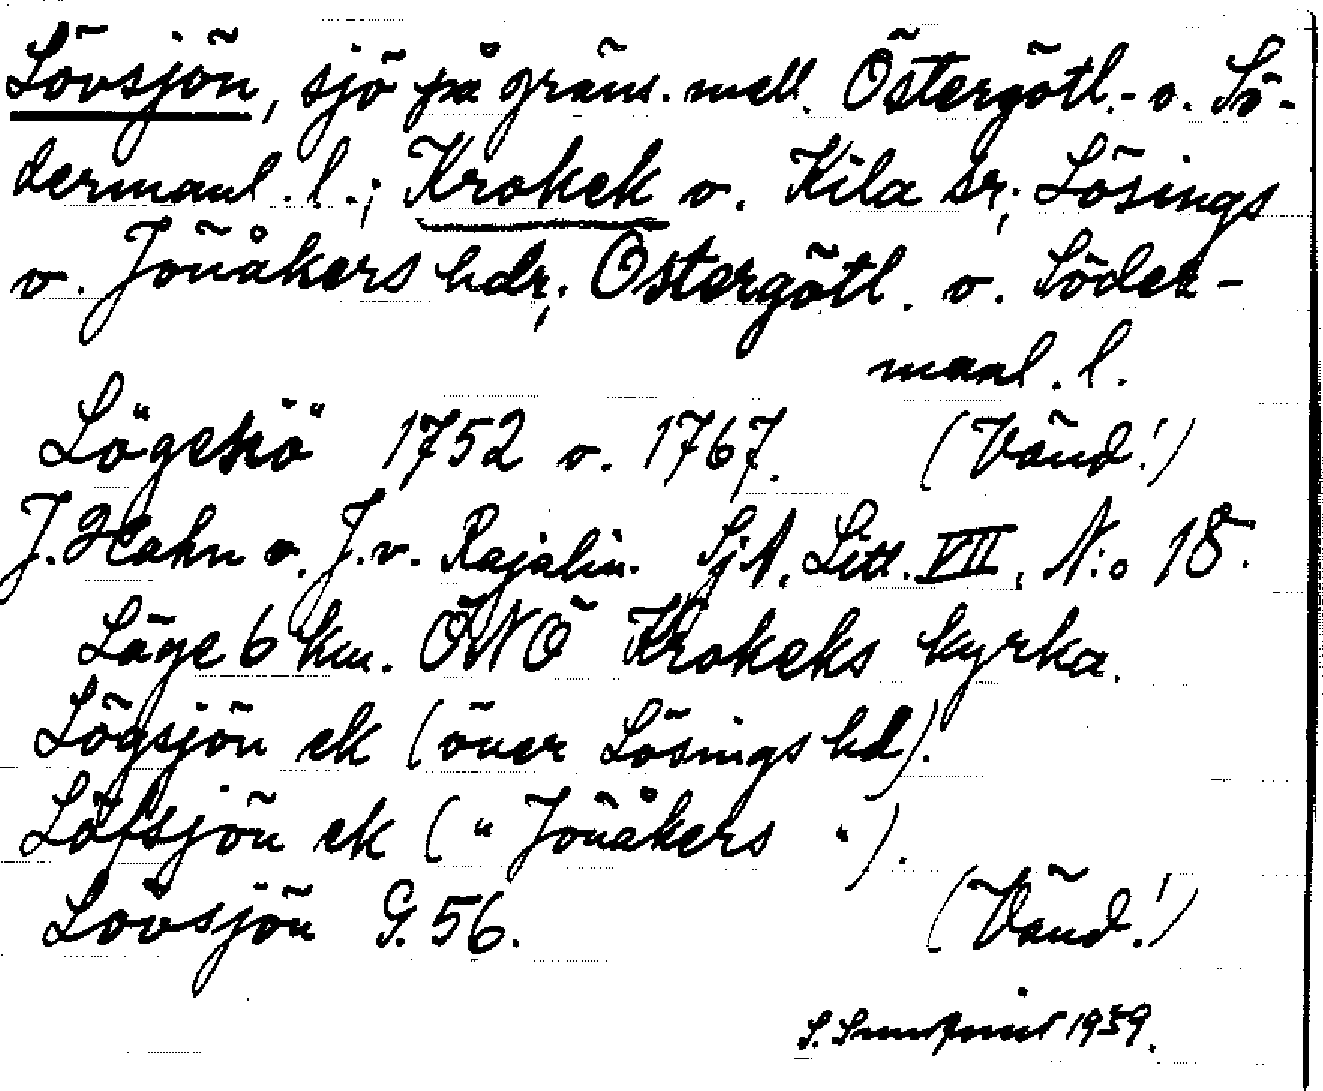 Lövsjön, sjö på gräns. mell. Östergötl.- o. Sö-
dermanl. l.; Krokek o. Kila sr; Lösings
o. Jönåkers hdr; Östergötl. o. Söder-
manl. l.
Lögesiö 1752 o. 1767. (Vänd!)
J. Hahn o. J. v. Rajalin. SjA. Litt. VII, N:o 18.
Läge 6 km. ÖNÖ Krokeks kyrka.
Lögsjön ek (över Lösings hd).
Löfsjön ek ( " Jönåkers " ).
Lövsjön G. 56. (Vänd!)
1939.